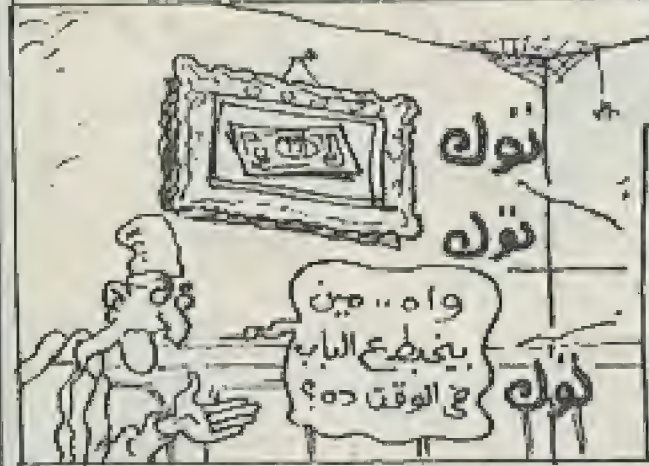 توك
توك
واه .. مين
بيخبط ع الباب
في الوقت ده ؟
توك